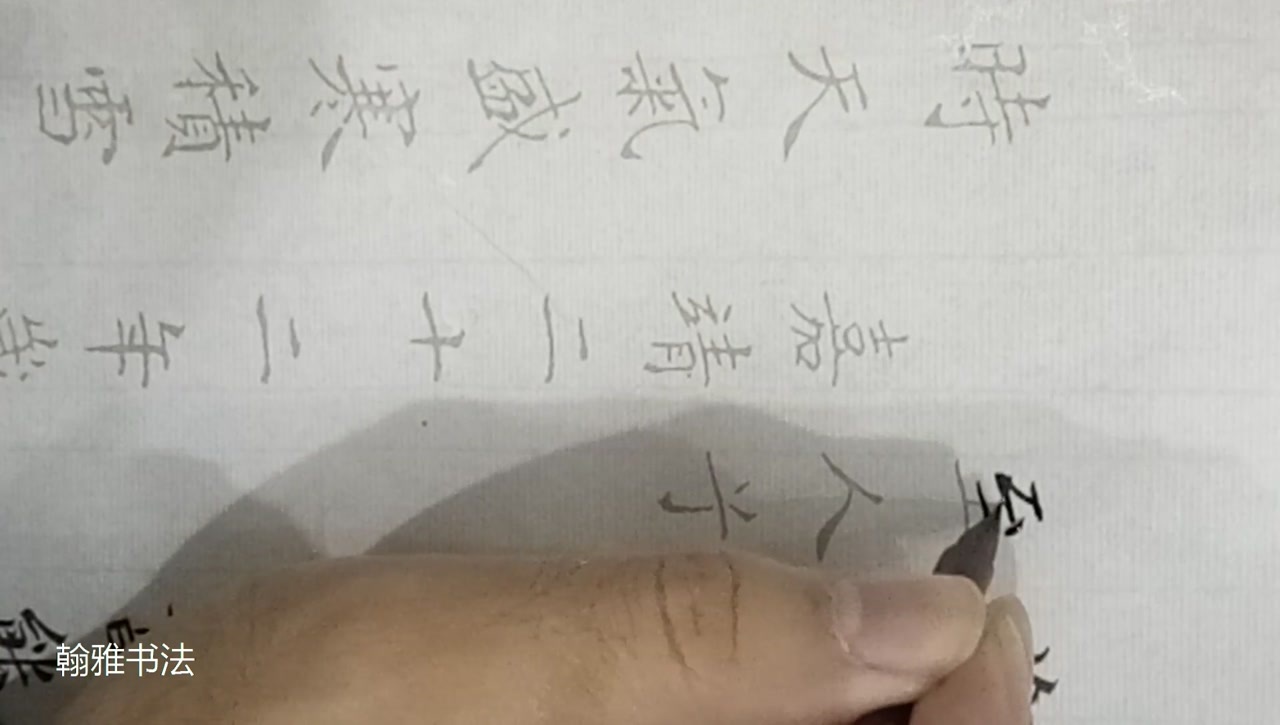 至人乎
嘉靖二十二年
時天氣盛寒積雪
翰雅书法